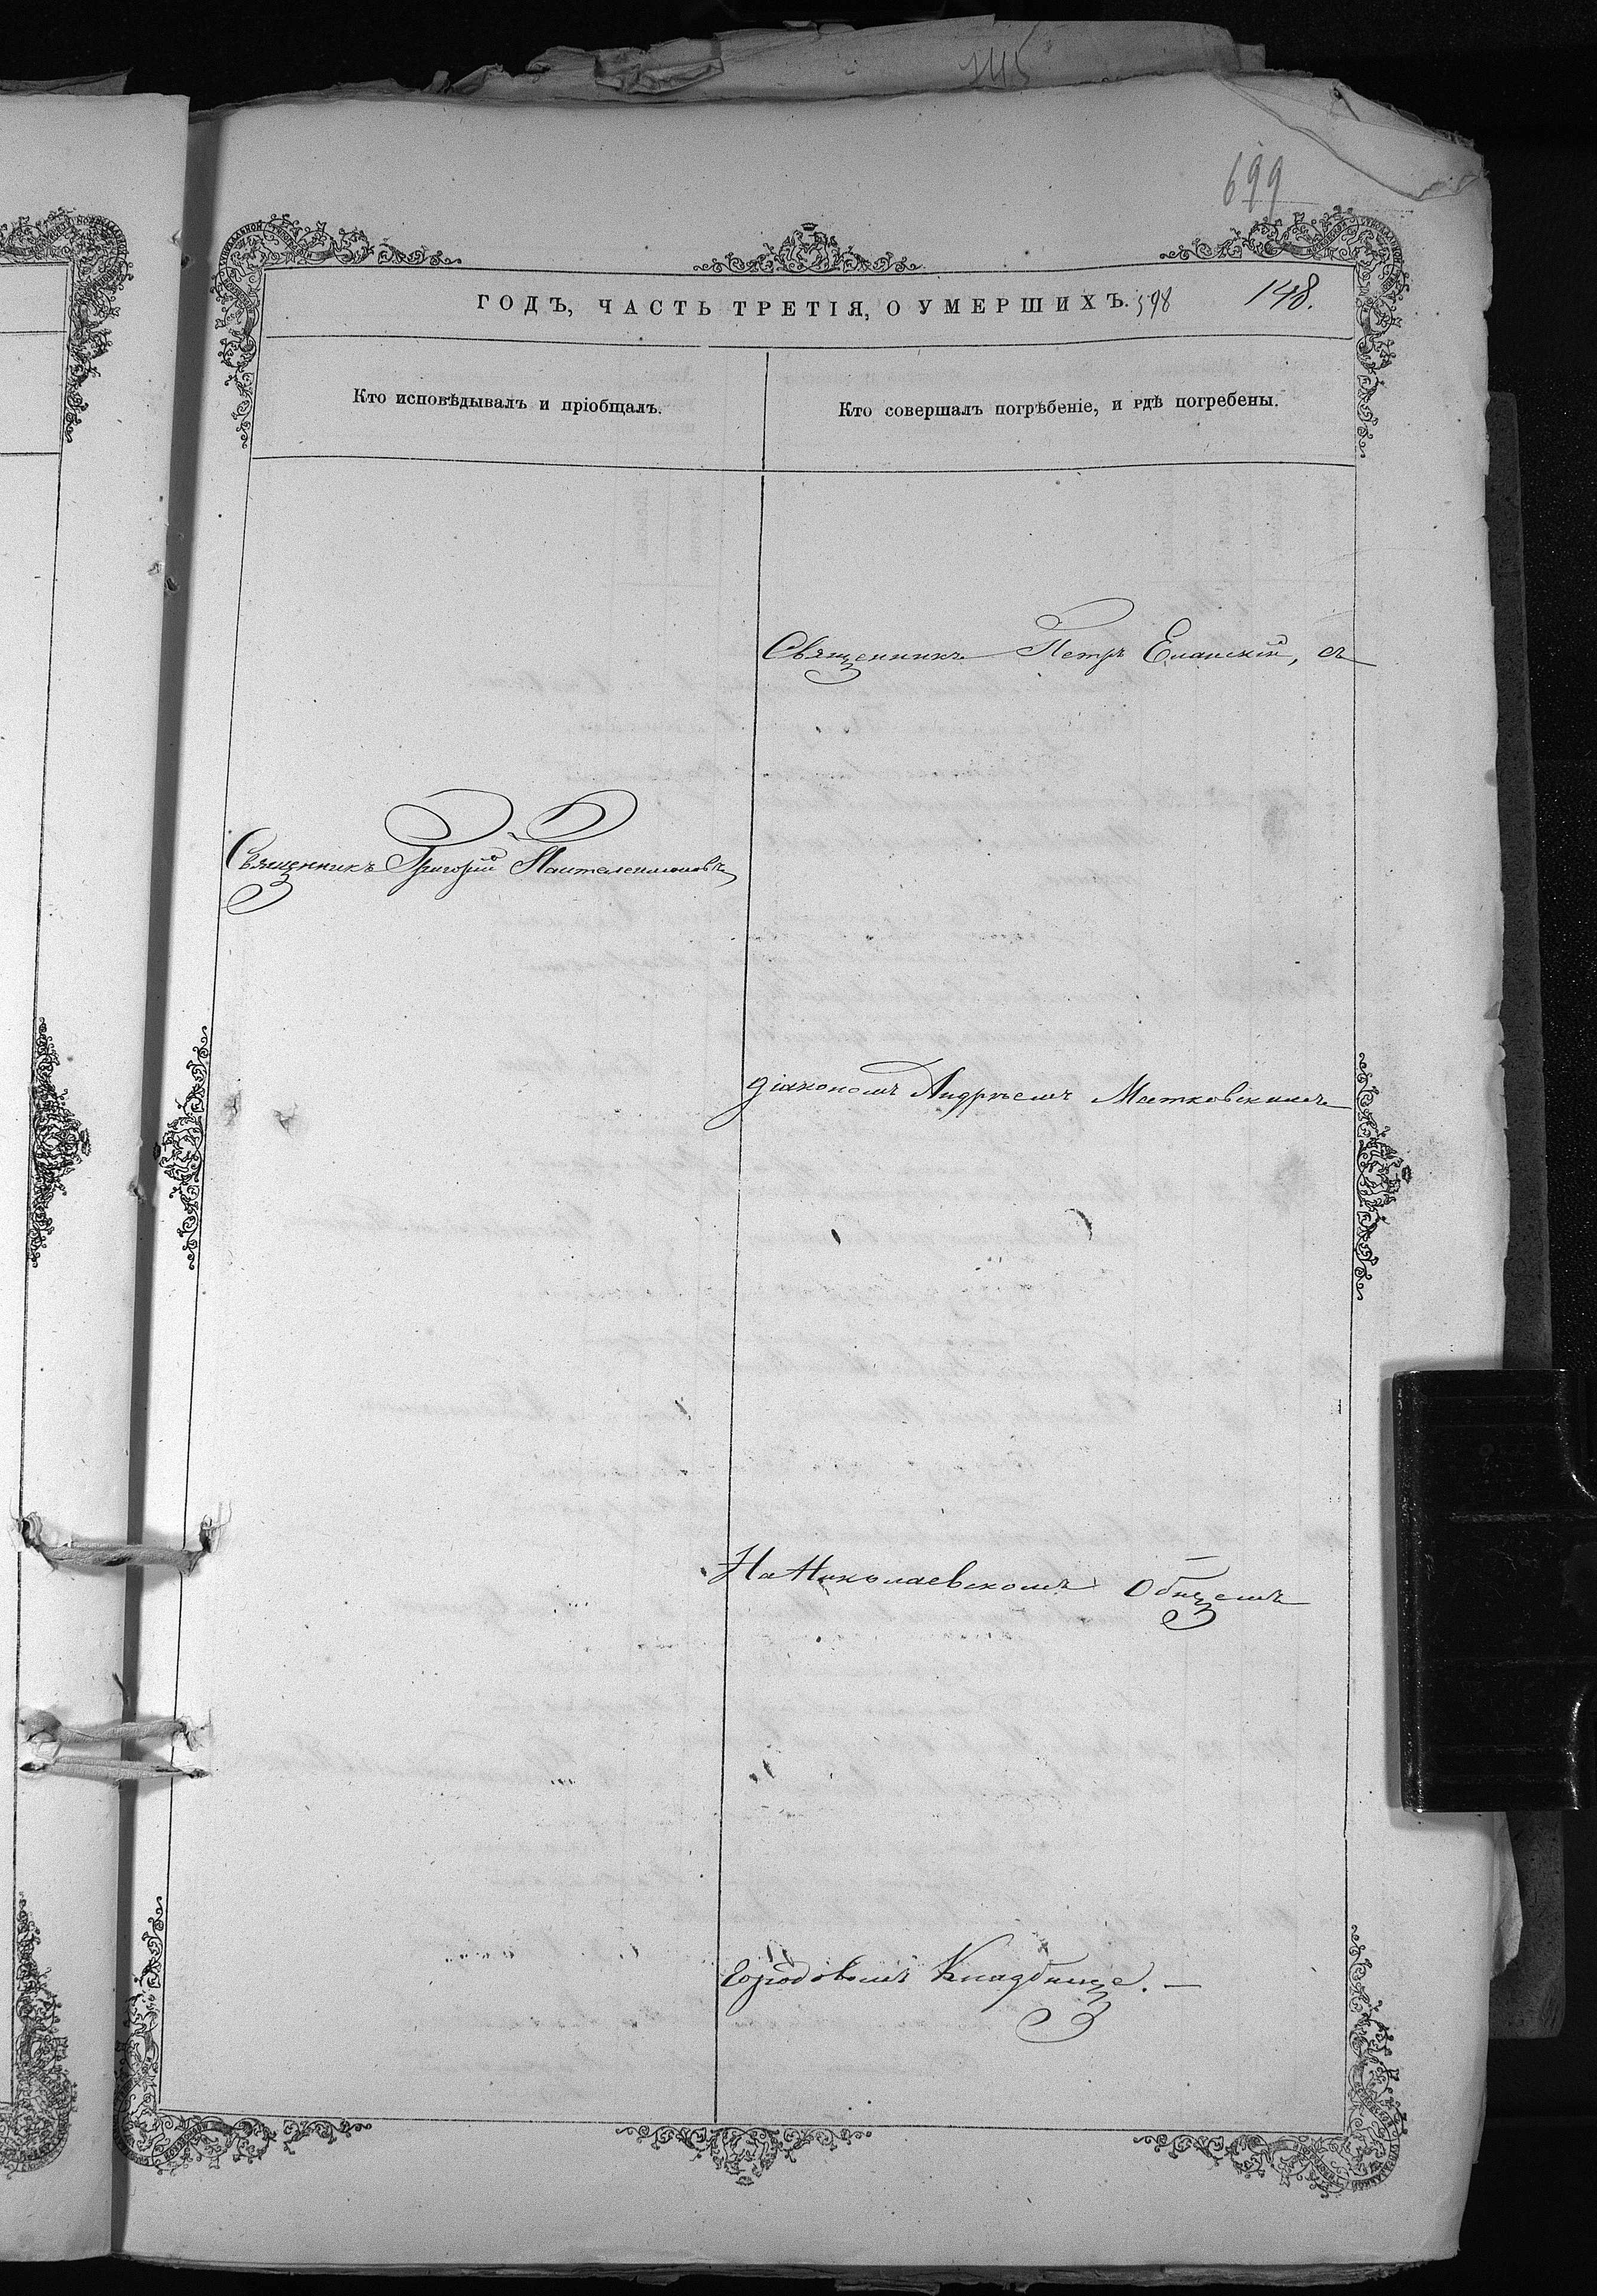 145
699
ГОДЪ, ЧАСТЬ ТРЕТІЯ, О УМЕРШИХЪ. 598 148.
Кто исповѣдывалъ и пріобщалъ.
Кто совершалъ погрѣбеніе, и гдѣ погребены.
Священникъ Петръ Еланскій, съ
Священникъ Григорій Пантелеимоновъ
діакономъ Андреемъ Матковскимъ
На Николаевскомъ Общемъ
городовомъ Кладбище. —